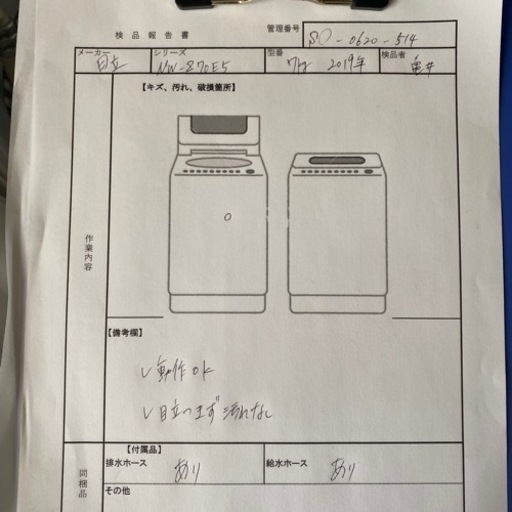 検品報告書
管理番号 SO-0620-514
メーカー 日立 シリーズ NW-Z70E5 型番 7kg 2019年 検品者 亀井
【キズ、汚れ、破損箇所】
作業内容
【備考欄】
レ動作OK
レ目立つキズ汚れなし
【付属品】
排水ホース あり 給水ホース あり
同梱品
その他